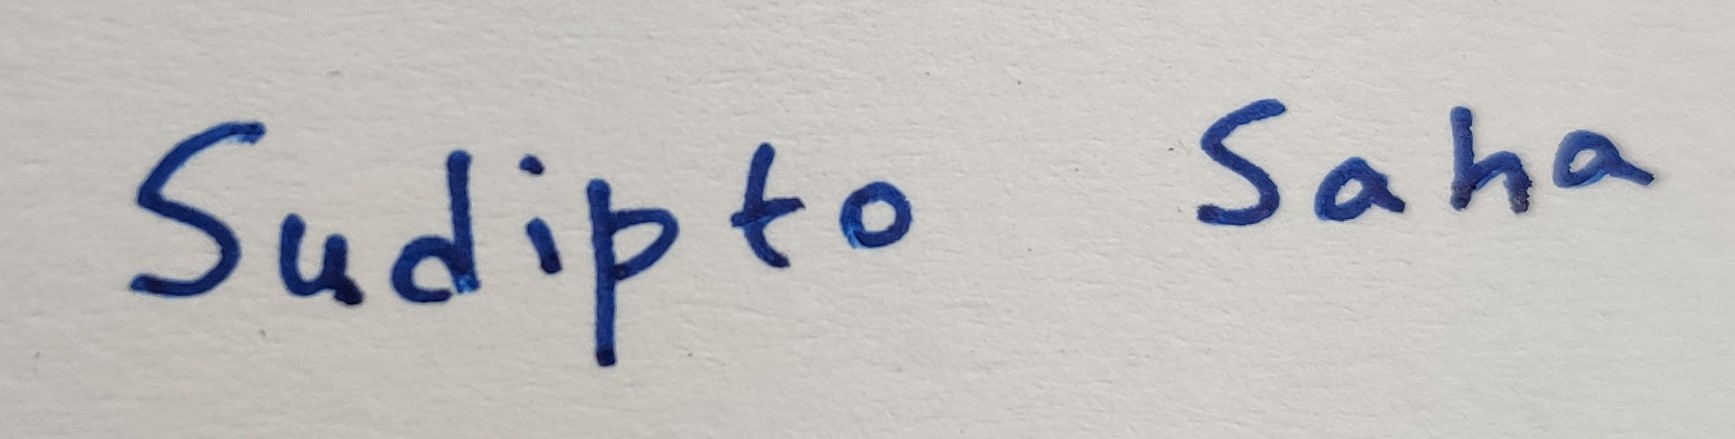 Sudipto Saha